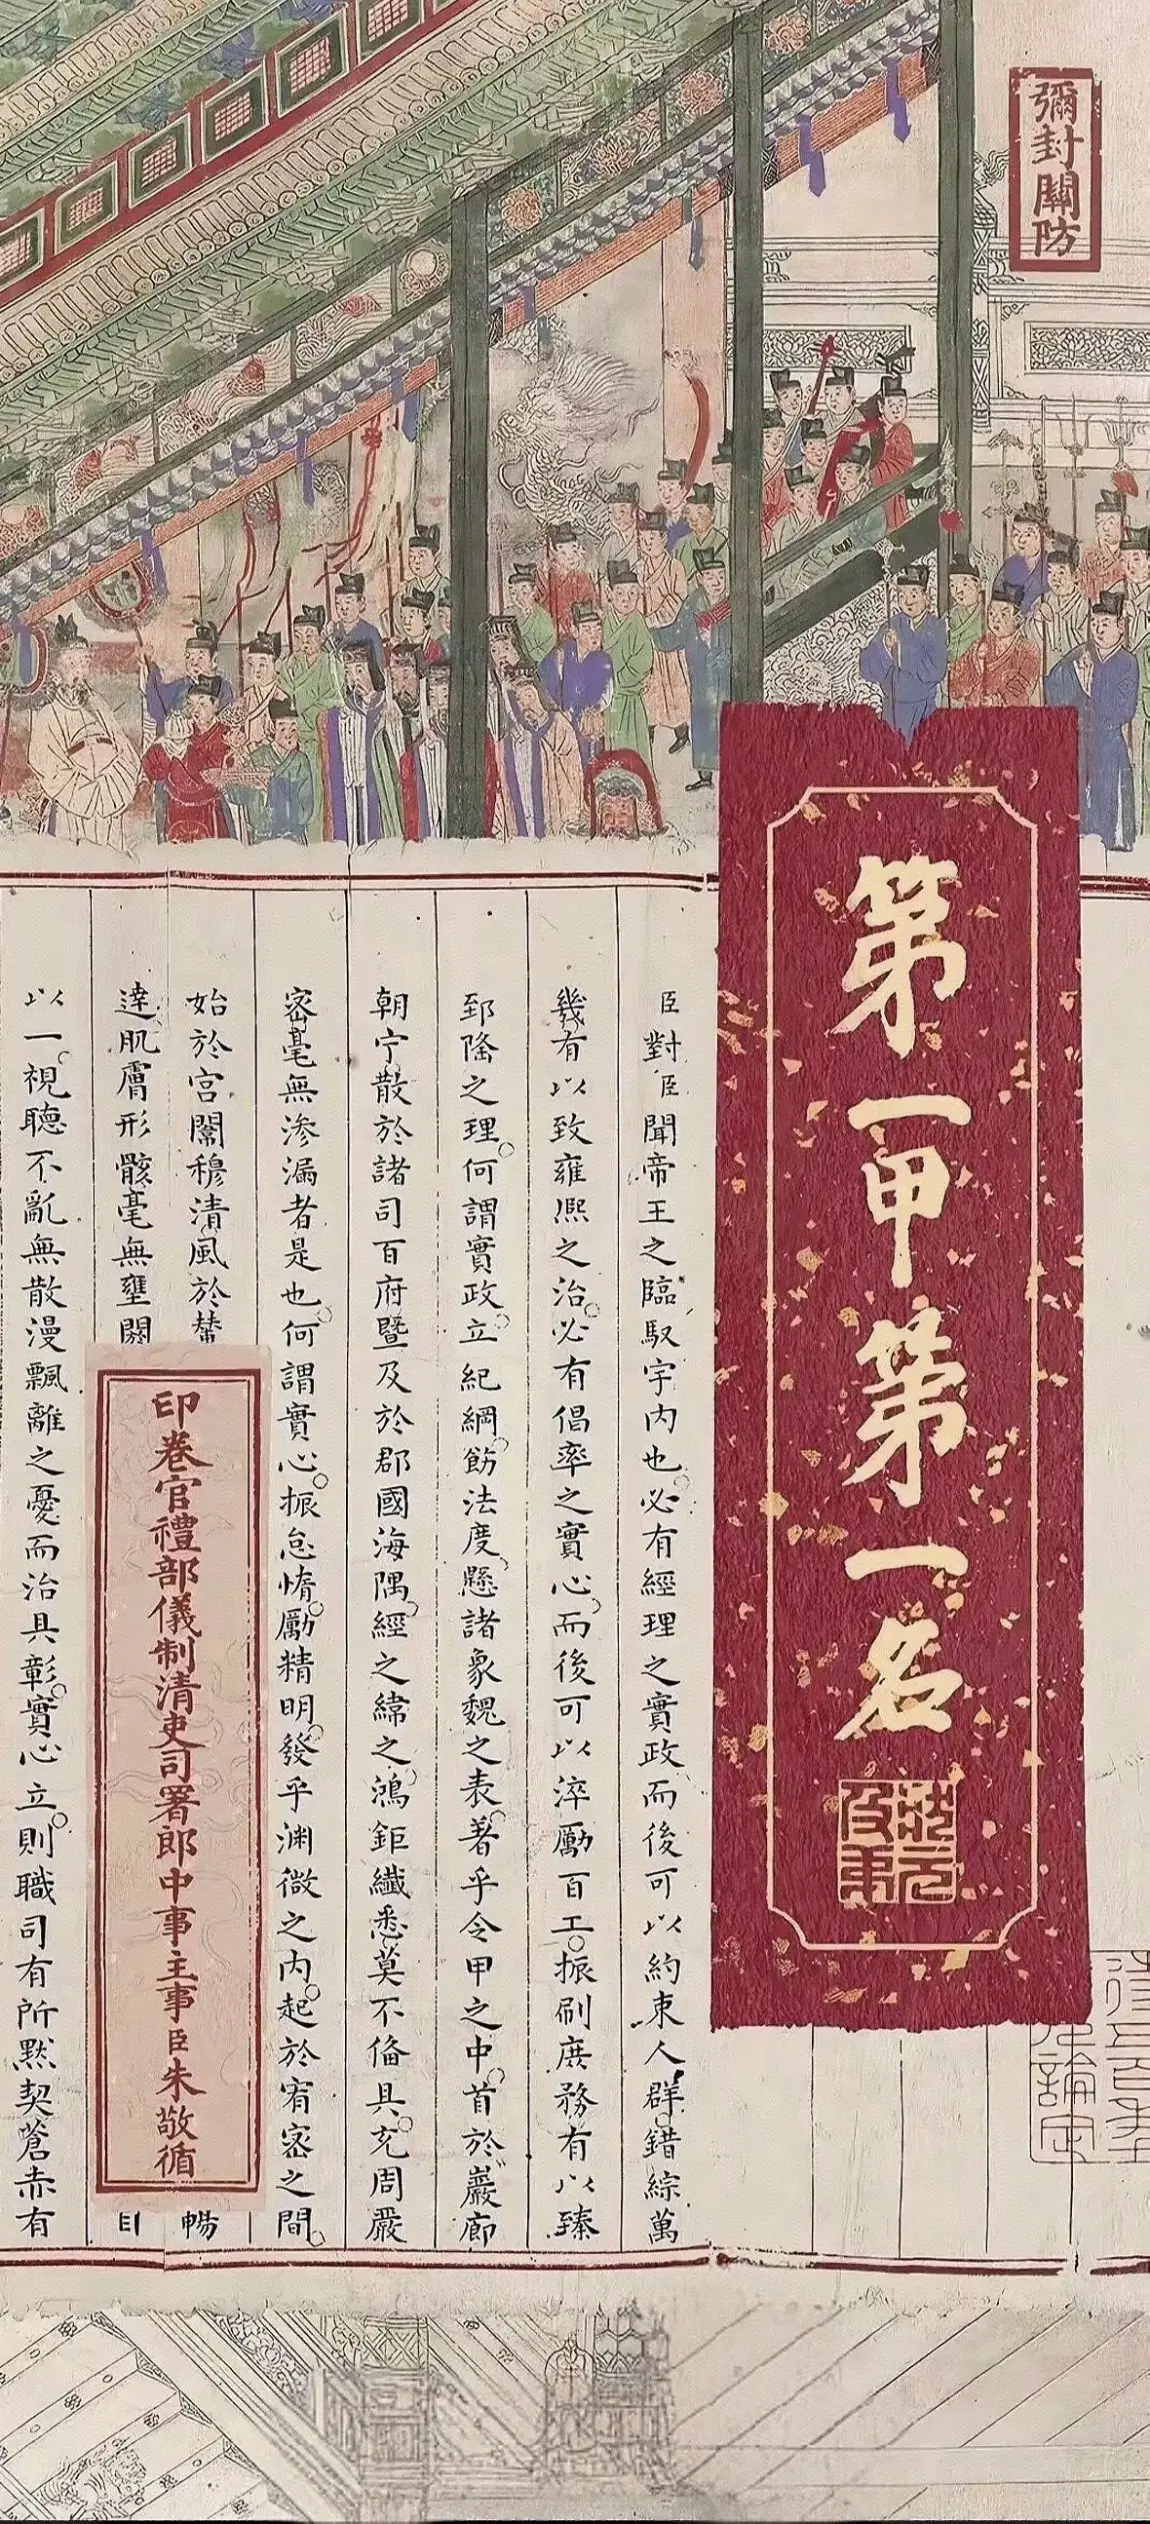 彌封關防
第一甲第一名
狀元及第
臣對臣聞帝王之臨馭宇内也必有經理之實政而後可以約束人群錯綜萬
幾有以致雍熙之治必有倡率之實心而後可以淬勵百工振刷庶務有以臻
郅隆之理何謂實政立紀綱飭法度懸諸象魏之表著乎令甲之中首於巖廊
朝宁散於諸司百府暨及於郡國海隅經之緯之鴻鉅纖悉莫不備具充周嚴
密毫無滲漏者是也何謂實心振怠惰勵精明發乎淵微之内起於宥密之間
始於宮闈穆清風於輦
暢
達肌膚形骸毫無壅閼
以一視聽不亂無散漫飄離之憂而治具彰實心立則職司有所默契蒼赤有
印卷官禮部儀制清吏司署郎中事主事臣朱敬循
論定